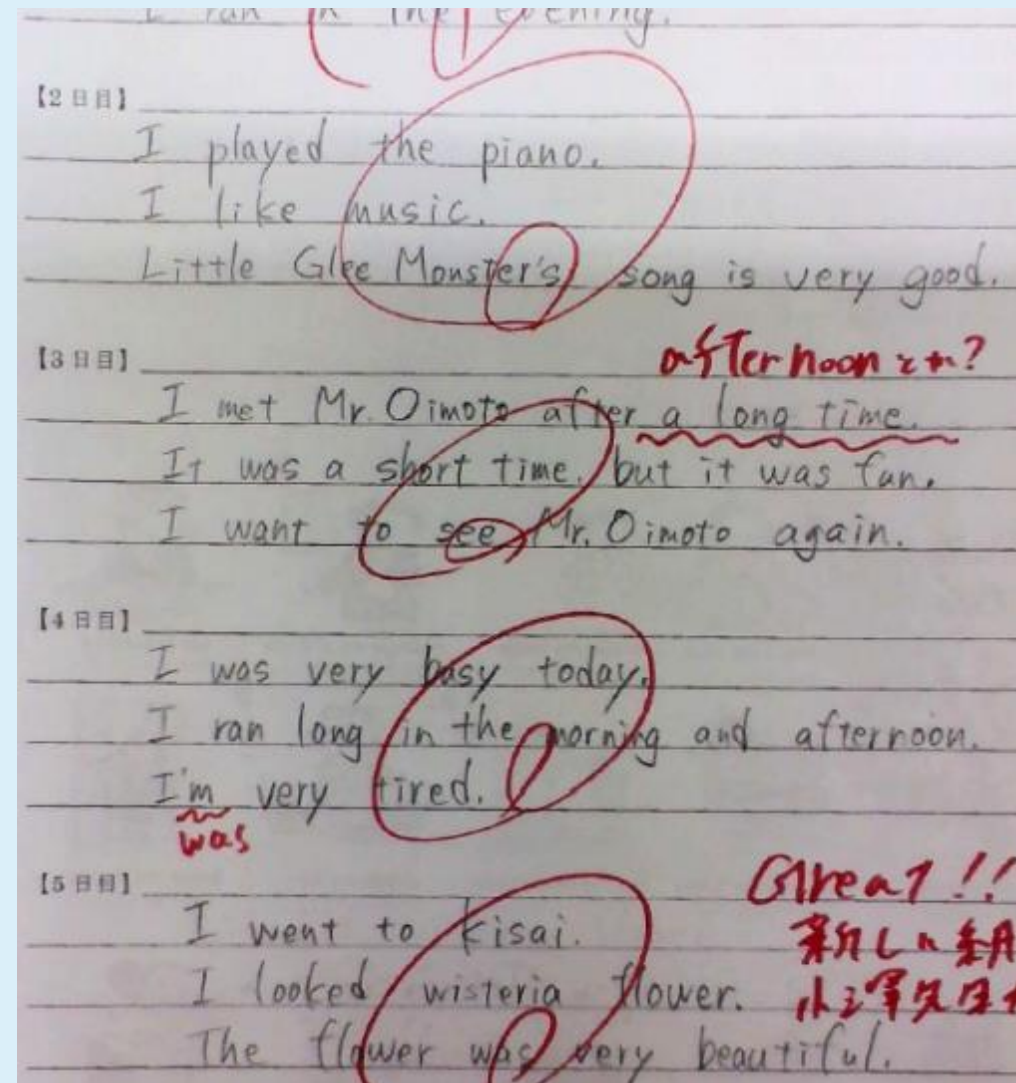 I ran in the evening.
【2日目】
I played the piano.
I like music.
Little Glee Monster's song is very good.
【3日目】
afternoonとか?
I met Mr. Oimoto after a long time.
It was a short time, but it was fun.
I want to see Mr. Oimoto again.
【4日目】
I was very busy today.
I ran long in the morning and afternoon.
I'm very tired.
was
【5日目】
Great!!
I went to kisai.
新しい
I looked wisteria flower.
The flower was very beautiful.